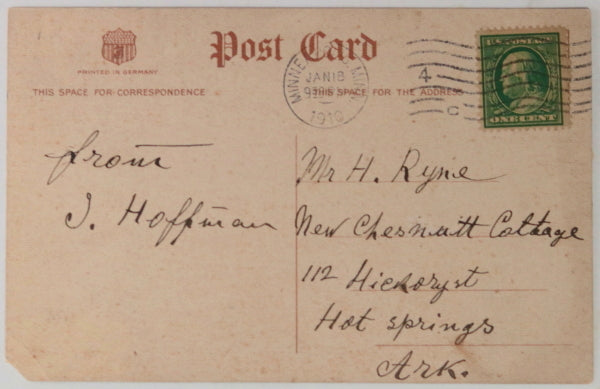 Post Card
PRINTED IN GERMANY
THIS SPACE FOR CORRESPONDENCE
THIS SPACE FOR THE ADDRESS
JAN 18
1910
4
C
U.S. POSTAGE
ONE CENT
from
J. Hoffman
Mr H. Ryne
New Chesnutt Cottage
112 Hickory st
Hot springs
Ark.